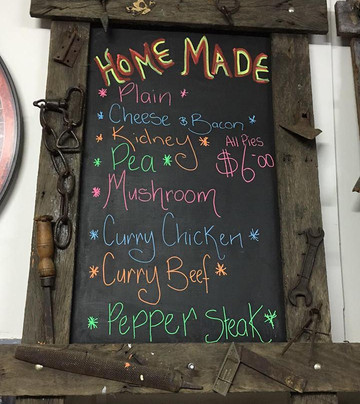 HOME MADE
* Plain *
* Cheese & Bacon *
* Kidney *
* Pea *
All Pies
$6.00
* Mushroom
* Curry Chicken *
* Curry Beef *
* Pepper Steak *